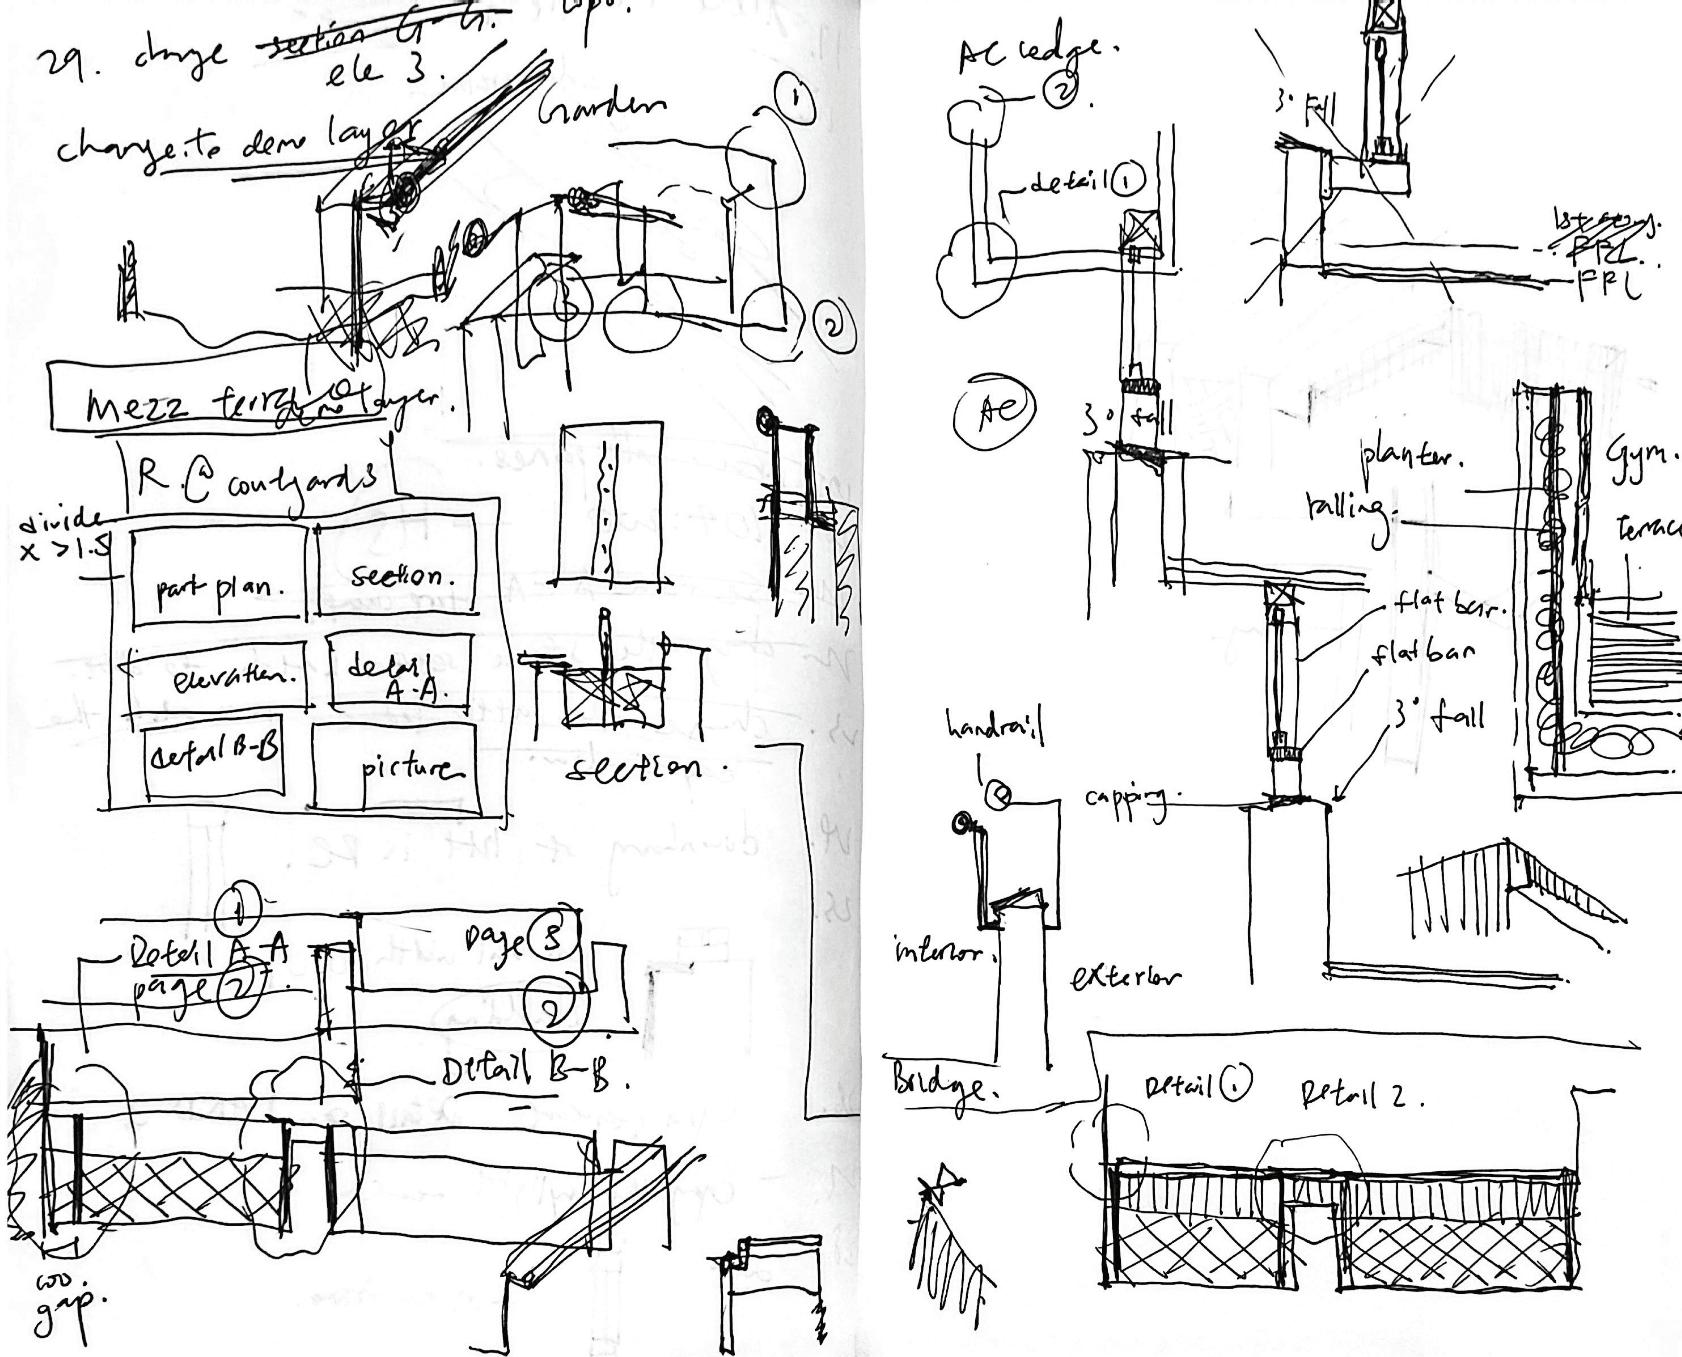 29. change section G-G.
ele 3.
change to demo layer
Garden
1
2
Mezz
layer.
R.@ courtyard 3
divide
x > 1.5
part plan.
section.
elevation.
detail
A-A.
detail B-B
picture
section.
1
Detail A-A
page 2.
page 3
2
Detail B-B.
gap.
AC ledge.
2.
detail 1
3° Fall
FRL.
FFL
AC
3° fall
planter.
railing.
Gym.
terrace
flat bar.
flat bar
3° fall
handrail
capping.
interior.
exterior
Bridge.
Detail 1
Detail 2.